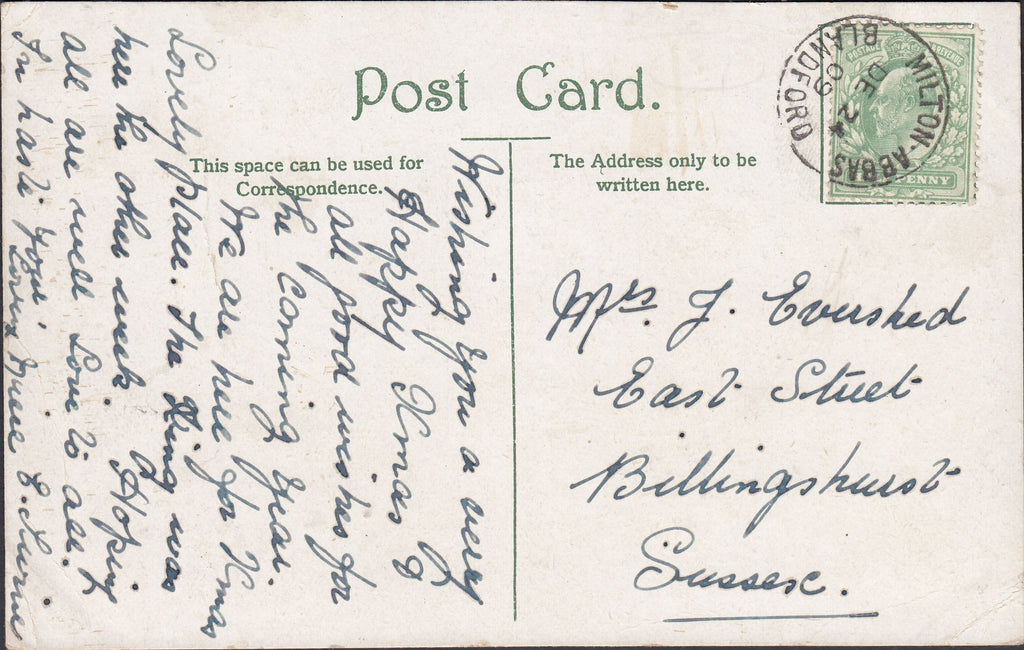 Post Card.
This space can be used for
Correspondence.
The Address only to be
written here.
POSTAGE REVENUE
PENNY
MILTON-ABBAS
BLANDFORD
DE 24
09
Wishing you a very
Happy Xmas &
all good wishes for
the Coming Year.
We are here for Xmas
Lovely place. The King was
here the other week. Hoping
all are well Love to all.
In haste your
Loving
Mrs. J. Evershed
East Street
Billingshurst
Sussex.